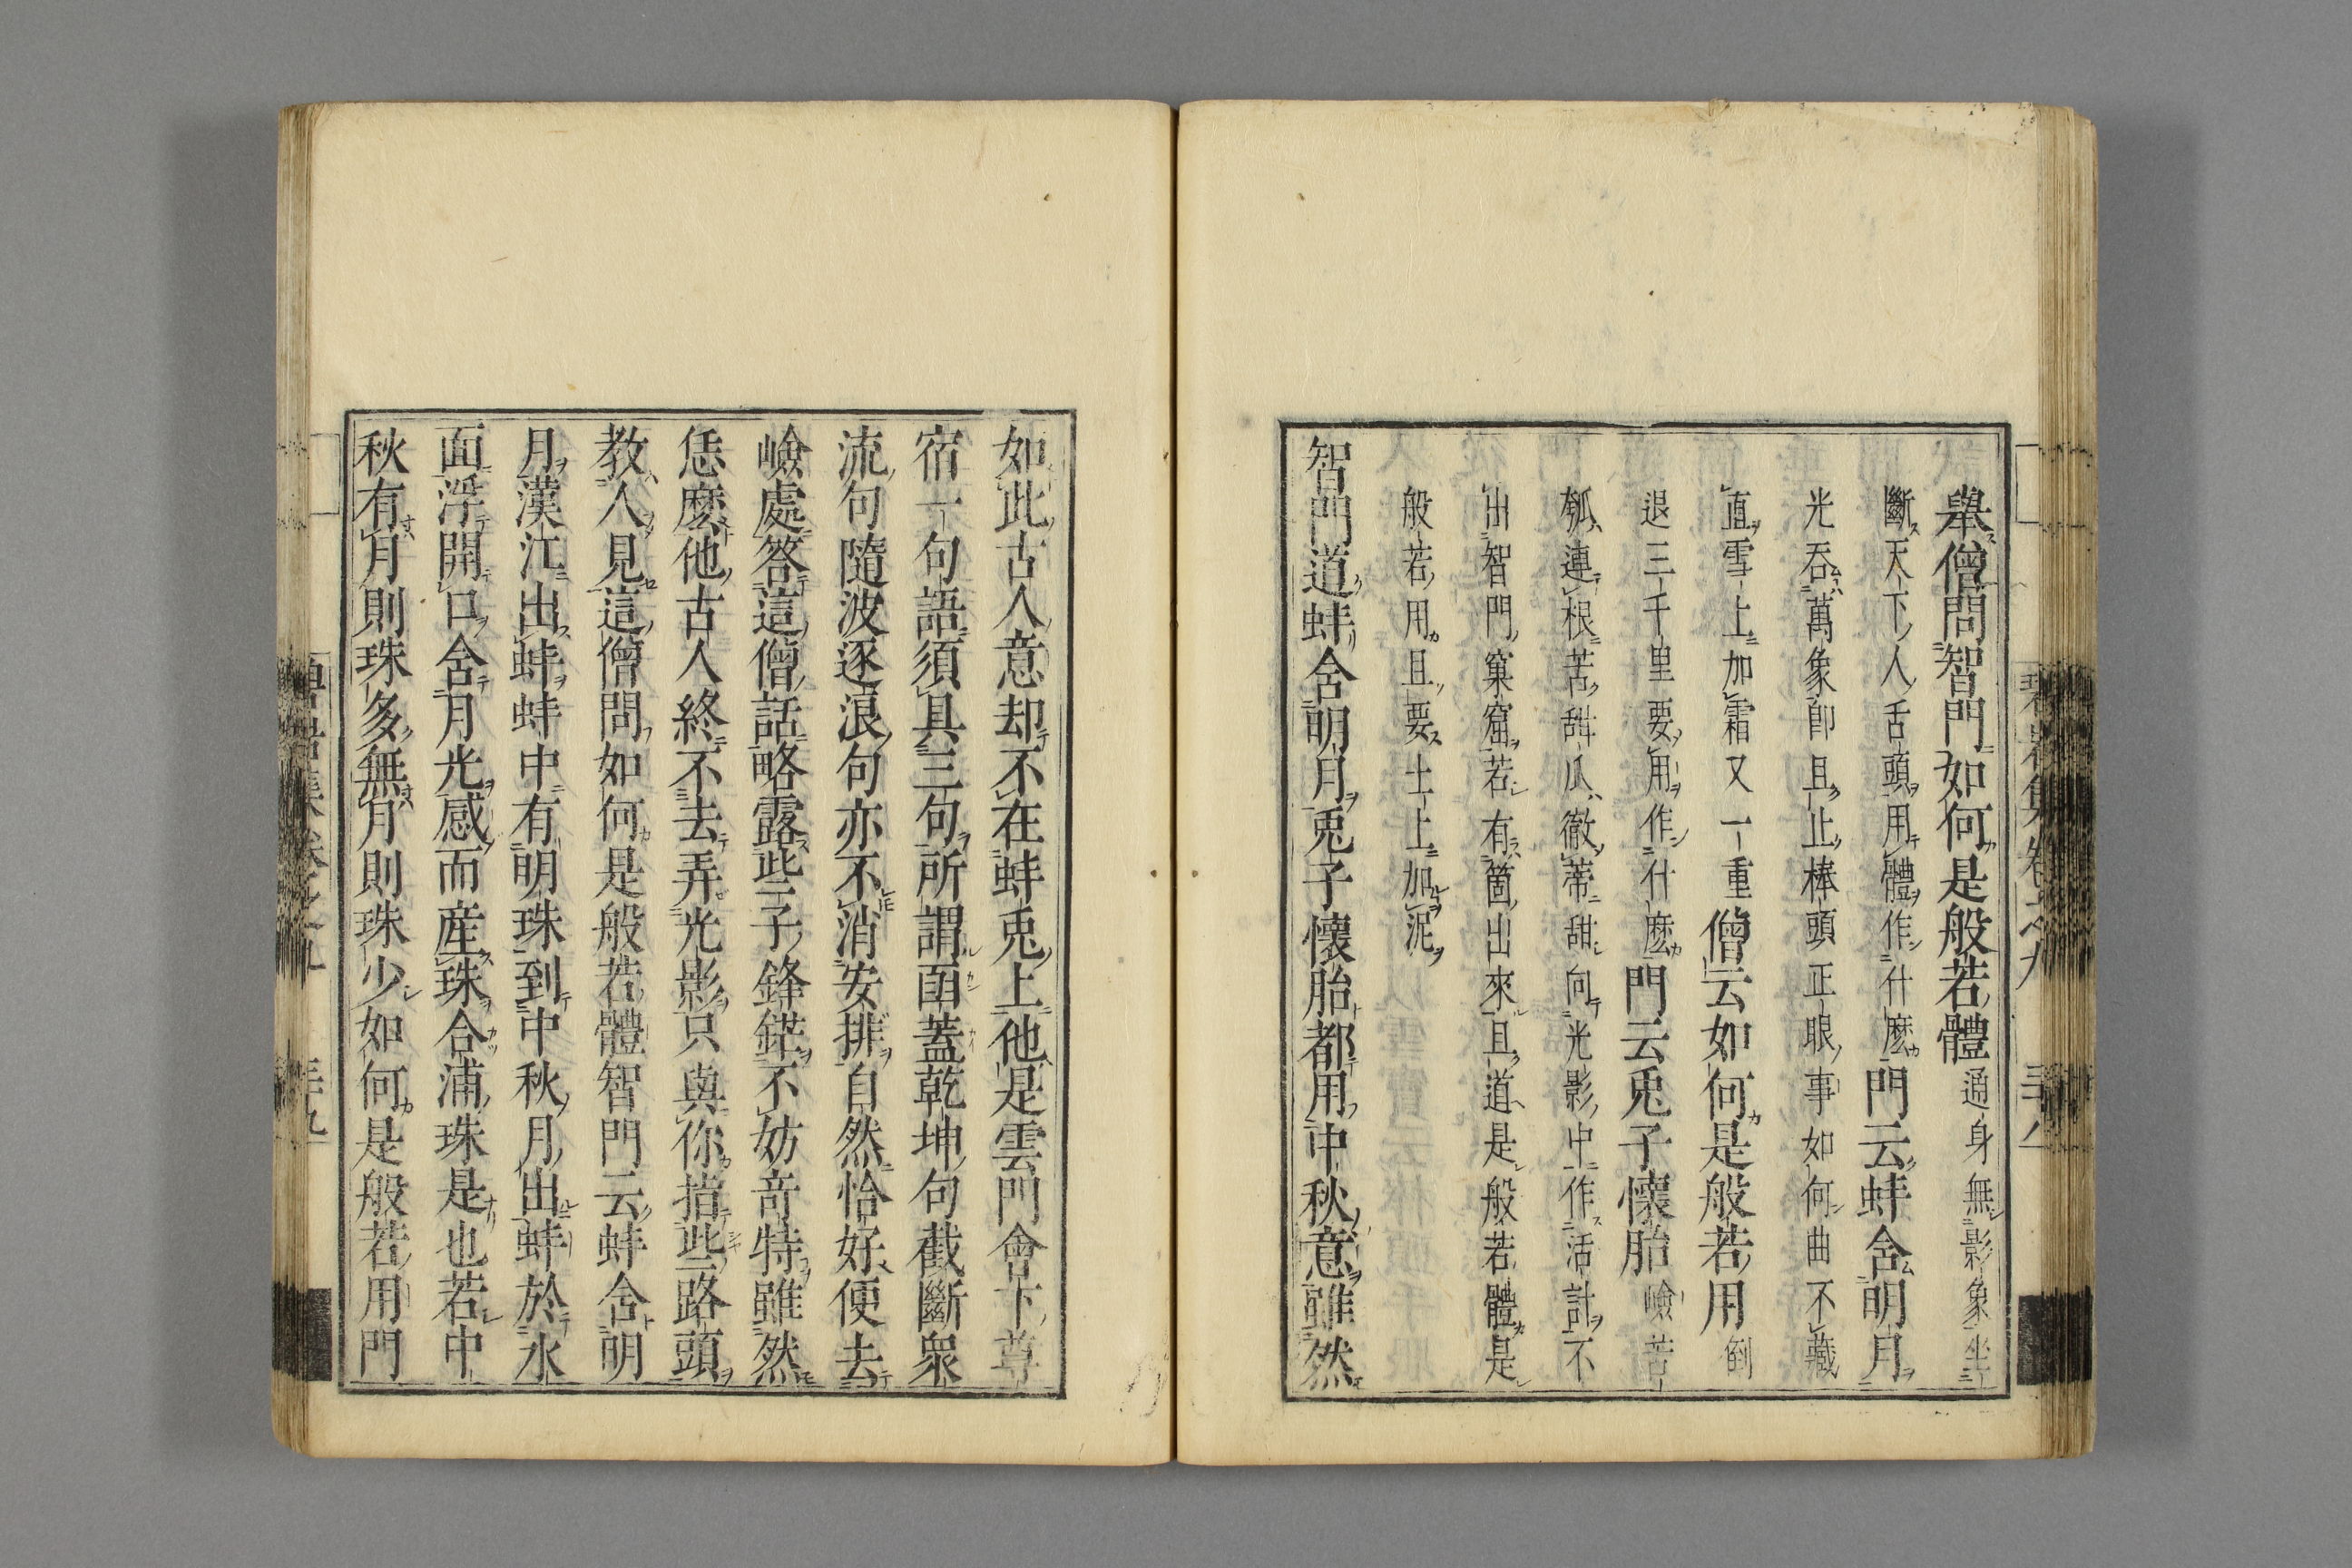 舉僧問智門如何是般若體通身無影象坐
斷天下人舌頭用體作什麼門云蚌含明月
光吞萬象即且止棒頭正眼事如何曲不藏
直雪上加霜又一重僧云如何是般若用倒
退三千里要用作什麼門云兎子懷胎嶮苦
瓠連根苦甜瓜徹蒂甜向光影中作活計不
出智門窠窟若有箇出來且道是般若體是
般若用且要土上加泥
智門道蚌含明月兎子懷胎都用中秋意雖然
碧岩集卷之九 三十八
如此古人意却不在蚌兎上他是雲門會下尊
宿一句語須具三句所謂函蓋乾坤句截斷衆
流句隨波逐浪句亦不消安排自然恰好便去
嶮處答這僧話略露些子鋒鋩不妨奇特雖然
恁麽他古人終不去弄光影只與你指些路頭
教人見這僧問如何是般若體智門云蚌含明
月漢江出蚌蚌中有明珠到中秋月出蚌於水
面浮開口含月光感而産珠合浦珠是也若中
秋有月則珠多無月則珠少如何是般若用門
碧岩集卷之九 三十九